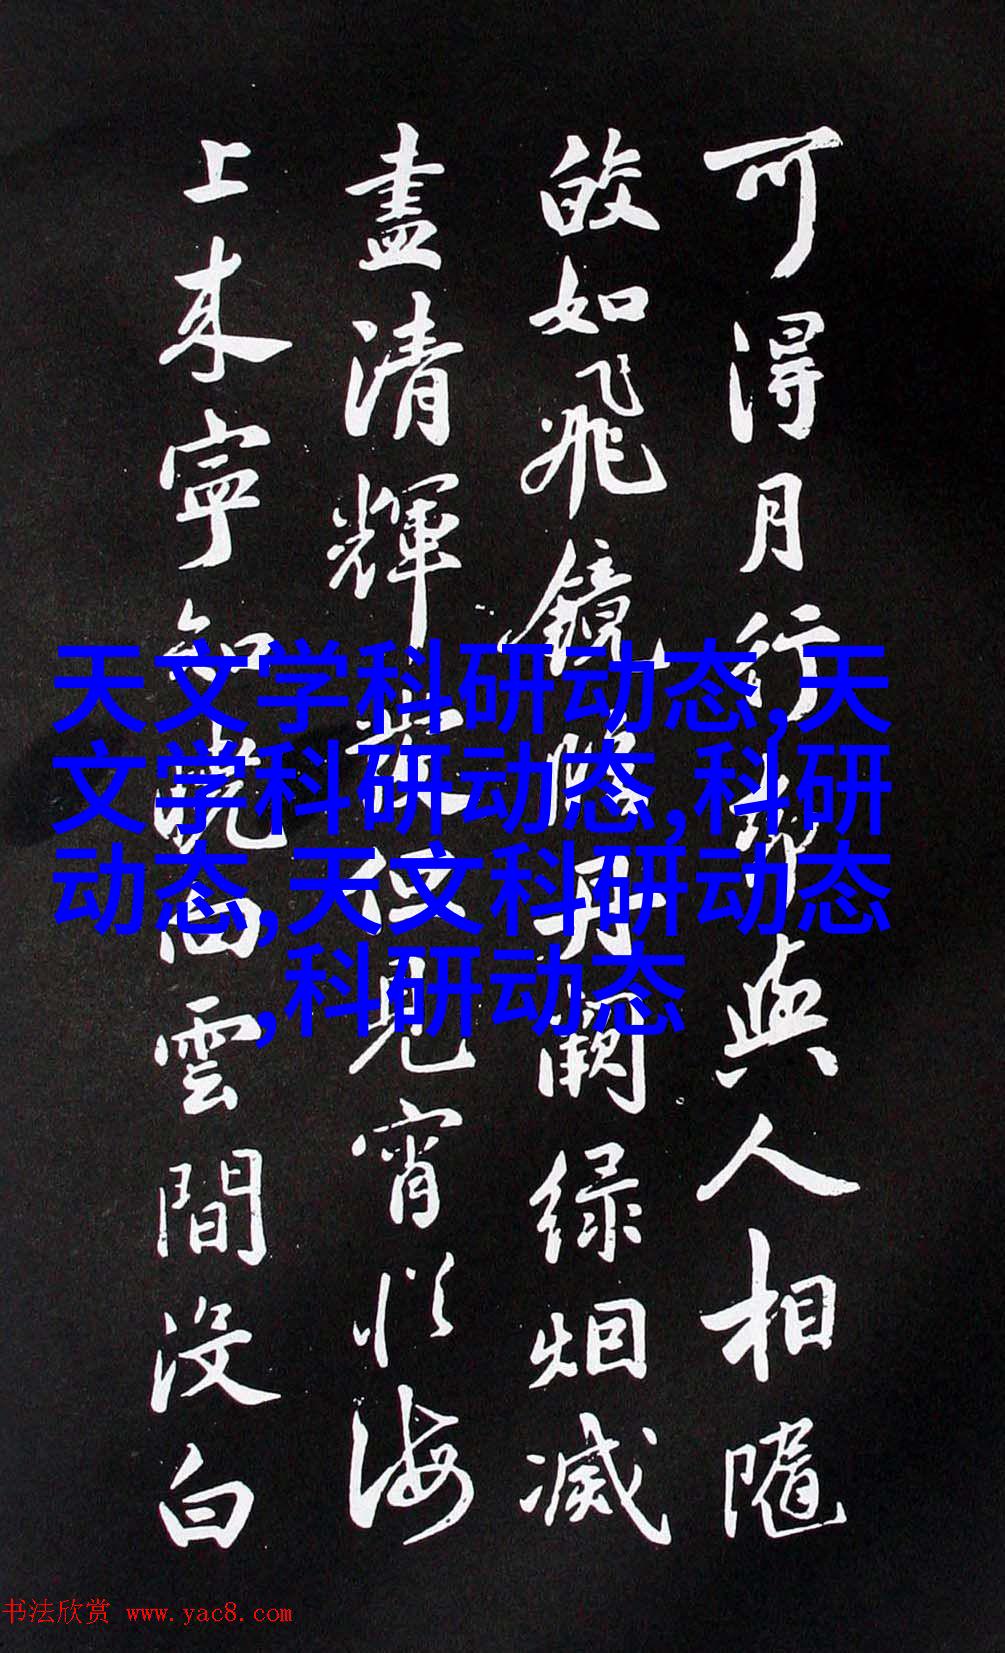 可得月行却與人相隨
皎如飛鏡臨丹闕绿烟滅
盡清輝發但見宵從海
上来寧知曉向雲間没白
天文学科研动态,天
文学科研动态,科研
动态,天文科研动态
,科研动态
书法欣赏 www.yac8.com